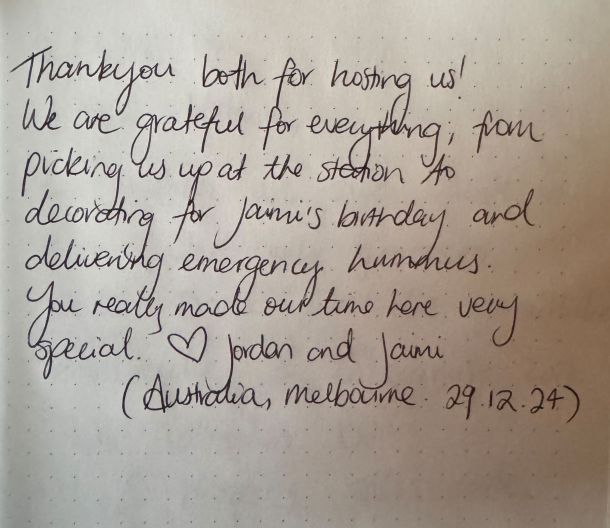 Thankyou both for hosting us!
We are grateful for everything, from
picking us up at the station to
decorating for Jaimi's birthday and
delivering emergency hummus.
You really made our time here very
special. ♡ Jordan and Jaimi
(Australia, Melbourne. 29.12.24)